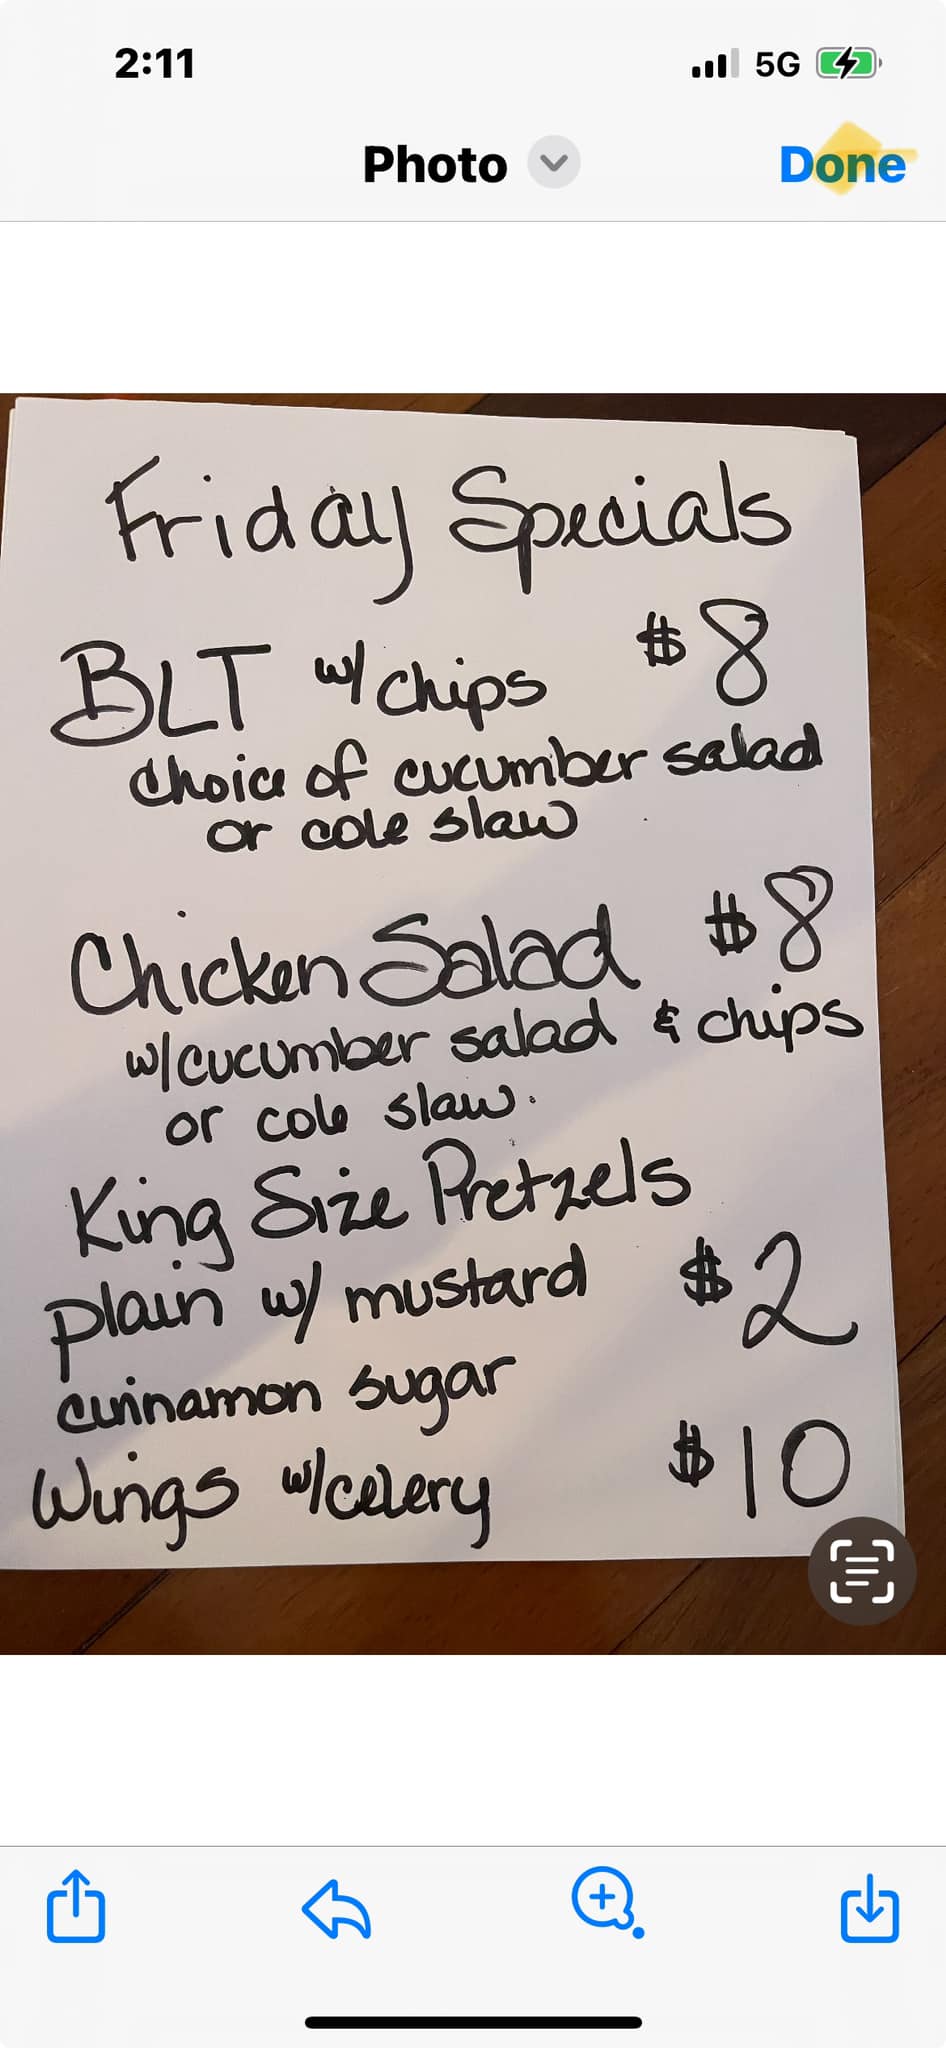 2:11 5G
Photo Done
Friday Specials
BLT w/chips $8
choice of cucumber salad
or cole slaw
Chicken Salad $8
w/cucumber salad & chips
or cole slaw.
King Size Pretzels
plain w/ mustard $2
cinnamon sugar
Wings w/celery $10